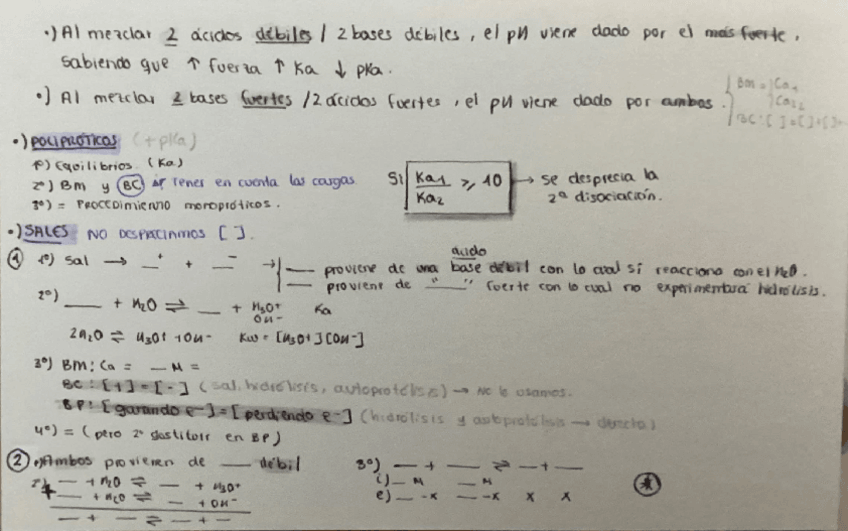 •) Al mezclar 2 ácidos débiles / 2 bases débiles, el pH viene dado por el más fuerte,
sabiendo que ↑ fuerza ↑ Ka ↓ pKa.
•) Al mezclar 2 bases fuertes / 2 ácidos fuertes, el pH viene dado por ambos. { Bm = { Ca1
Ca2
BC: [ ] = [ ] + [ ]
•) POLIPRÓTICOS (+ pKa)
1º) Equilibrios. (Ka)
2º) Bm y BC tener en cuenta las cargas
3º) = PROCEDIMIENTO monopróticos.
Si Ka1 / Ka2 ≥ 10 → se desprecia la
2ª disociación.
•) SALES NO DESPRECIAMOS [ ].
① 1º) Sal → __⁺ + __⁻ → { __ proviene de una base débil con lo cual sí reacciona con el H2O.
ácido
__ proviene de __"__ fuerte con lo cual no experimentará hidrólisis.
2º) ___ + H2O ⇌ __ + H3O+ Ka
OH-
2H2O ⇌ H3O+ + OH- Kw = [H3O+][OH-]
3º) BM: Ca = __ M =
BC: [+] = [-] (sal, hidrólisis, autoprotólisis) → No lo usamos.
BP: [ganando e-] = [perdiendo e-] (hidrólisis y autoprotólisis →
4º) = (pero 2º sustituir en BP)
② 1º) Ambos provienen de ___ débil
2º) __ + H2O ⇌ __ + H3O+
+ __ + H2O ⇌ __ + OH-
__ + __ ⇌ __ + __
3º) __ + __ ⇌ __ + __
i) __ M __ M
e) __ -x __ -x x x